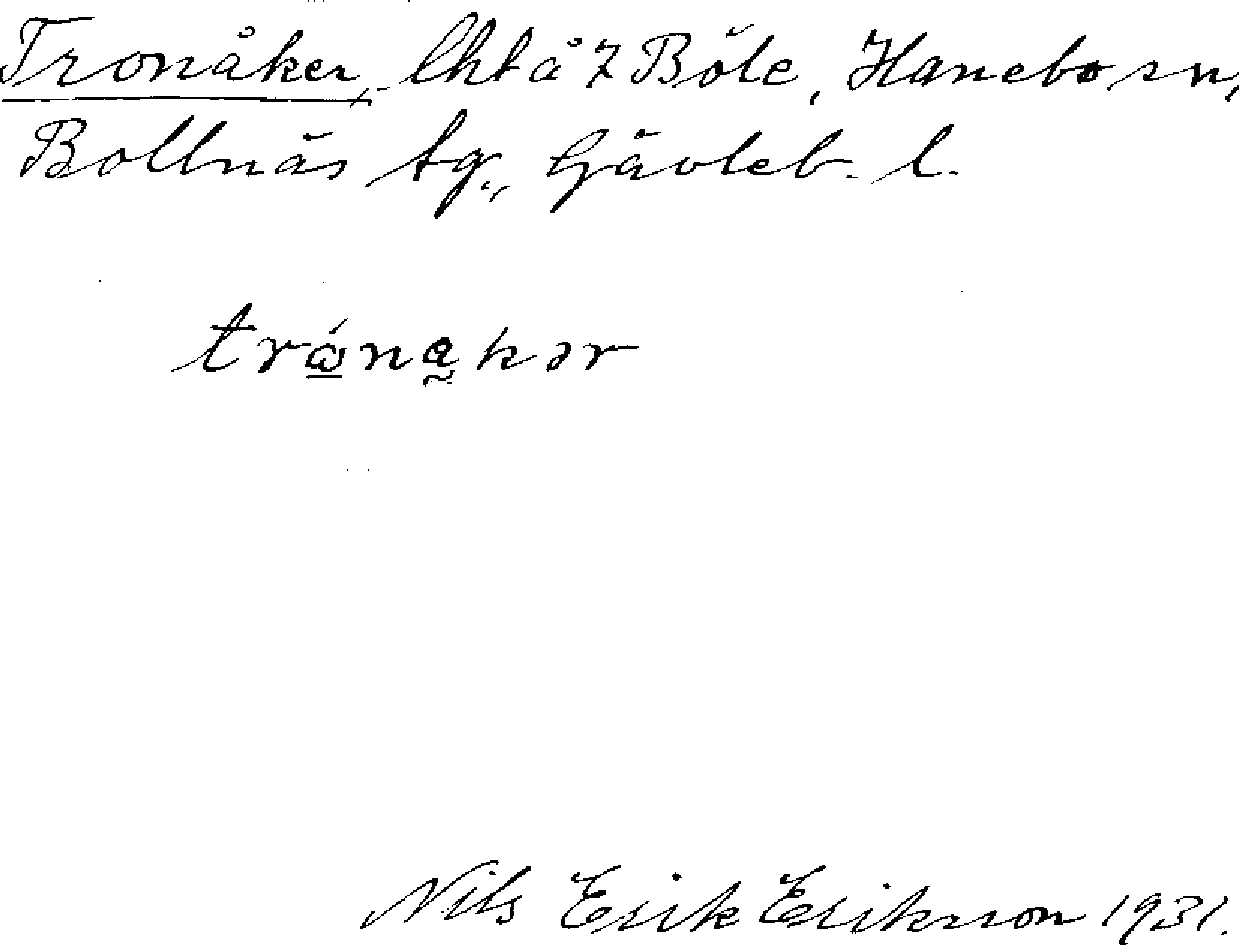 Tronåker, lht å 7 Böle, Hanebo sn,
Bollnäs tg., Gävleb. l.
trώnakər
Nils Erik Erikson 1931.